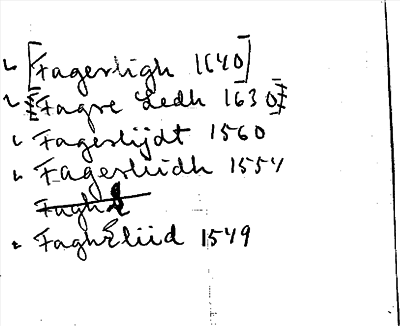 [Fagerligh 1640]
[Fagre Ledh 1630]
Fagerlijdt 1560
Fagerliidh 1554
Fagh
Faghreliid 1549